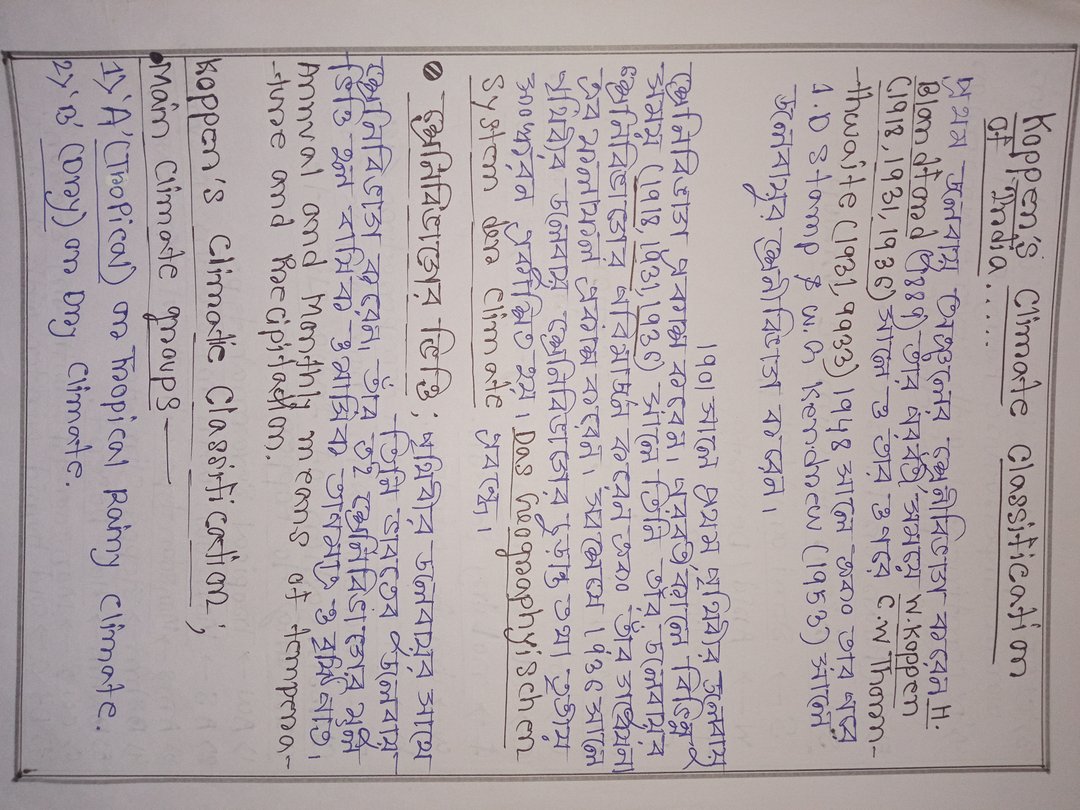 Koppen's Climate Classification
of India.....
প্রথম জলবায়ু অঞ্চলের শ্রেণীবিভাগ করেন H.
Blandford (1889) তার পরবর্তী সময়ে W. Koppen
(1918, 1931, 1936) সালে ও তার পরে C.W Thorn-
thwaite (1931, 1933) 1948 সালে এবং তার পরে
L.D Stamp & W.G Kendrew (1953) সালে
জলবায়ুর শ্রেণীবিভাগ করেন।
1901 সালে প্রথম পৃথিবীর জলবায়ু
শ্রেণীবিভাগ প্রকাশ করেন। পরবর্তীকালে বিভিন্ন
সময় (1918, 1931, 1936) সালে তিনি তাঁর জলবায়ুর
শ্রেণীবিভাগের পরিমার্জন করেন এবং তাঁর সর্বশেষ
প্রকাশ করেন। 1936 সালে
পৃথিবীর জলবায়ু শ্রেণীবিভাগের চূড়ান্ত তথা তৃতীয়
সংস্করণ প্রকাশিত হয়। Das Geographyischen
System der Climate গ্রন্থে।
শ্রেণীবিভাগের ভিত্তি; পৃথিবীর জলবায়ুর সাথে
তিনি জলবায়ু
শ্রেণীবিভাগ করেন। তাঁর এই শ্রেণীবিভাগের মূল
ভিত্তি হল বার্ষিক ও মাসিক তাপমাত্রা ও বৃষ্টিপাত।
Annual and Monthly means of tempera-
-ture and Precipitation.
Koppen's Climatic Classification;
Main Climate groups—
1) 'A' (Tropical) or Tropical Rainy Climate.
2) 'B' (Dry) or Dry Climate.